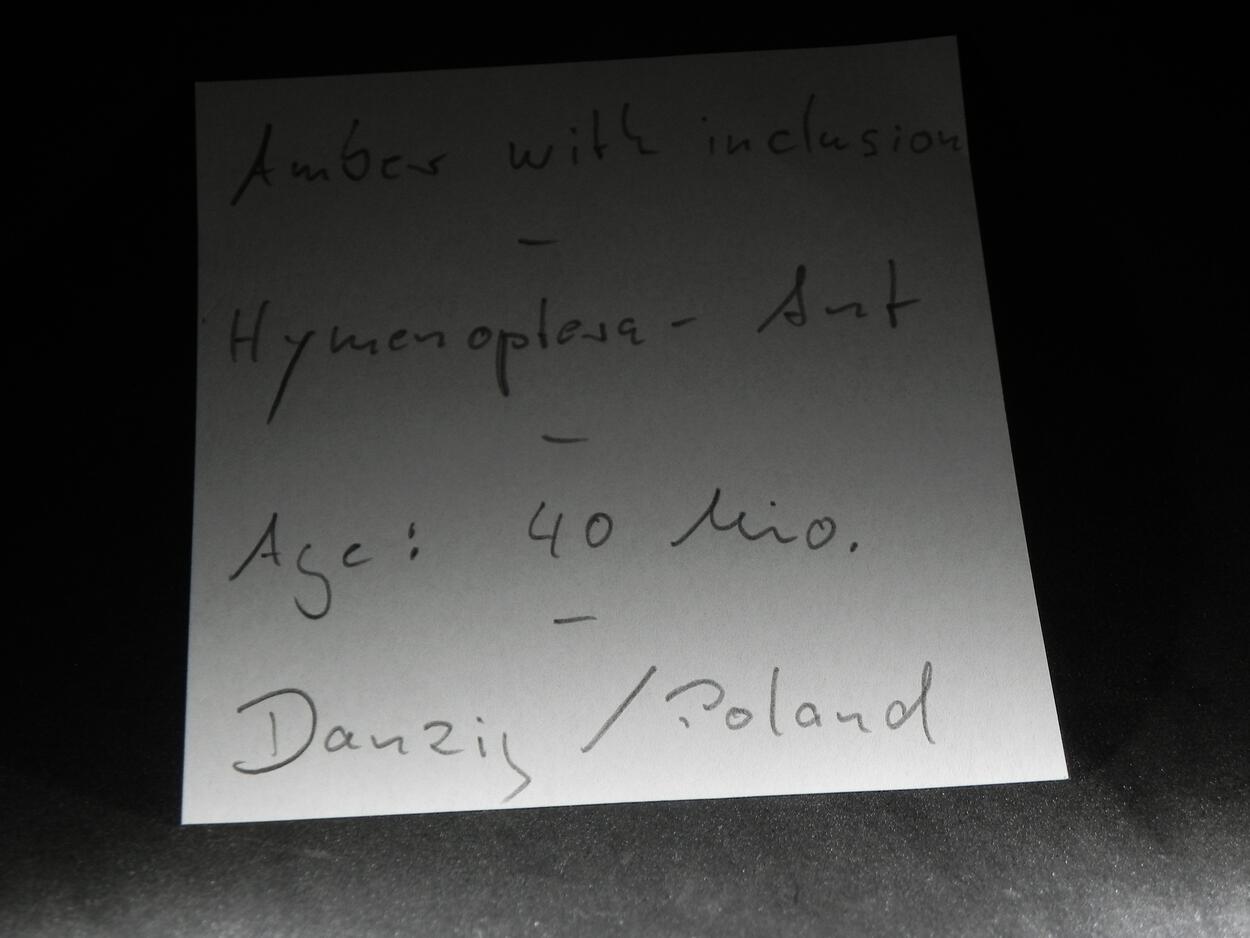 Amber with inclusion
-
Hymenoptera - Ant
-
Age: 40 Mio.
-
Danzig / Poland